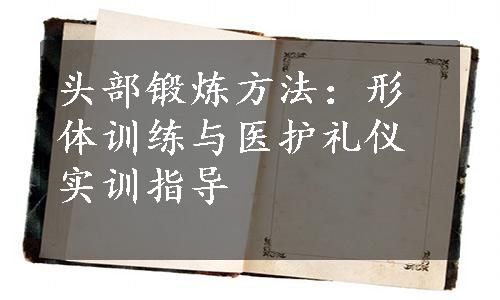 头部锻炼方法：形
体训练与医护礼仪
实训指导